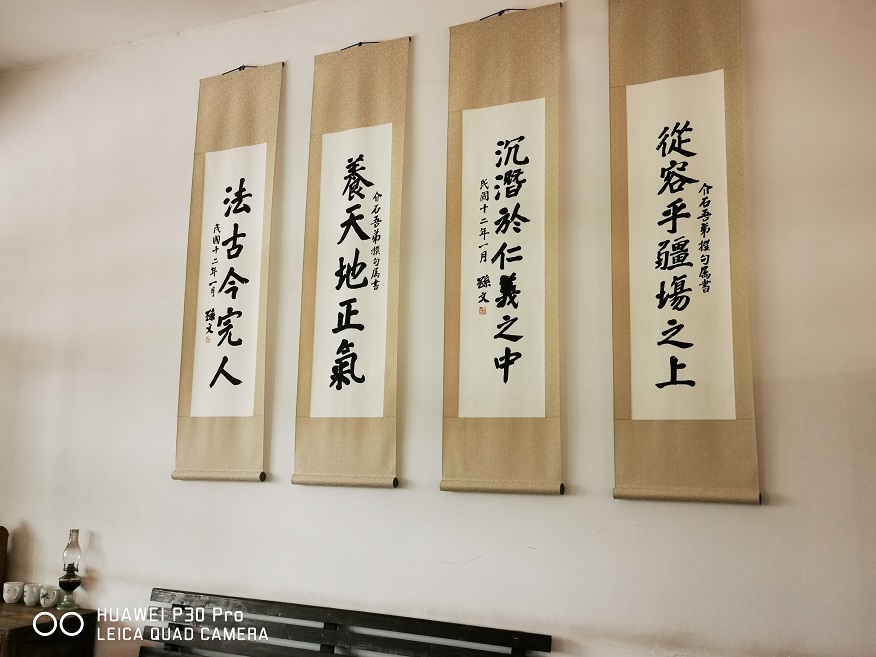 從容乎疆場之上
介石吾弟撰句属書
沉潛於仁義之中
民國十二年一月 孫文
養天地正氣
介石吾弟撰句属書
法古今完人
民國十二年一月 孫文
HUAWEI P30 Pro
LEICA QUAD CAMERA